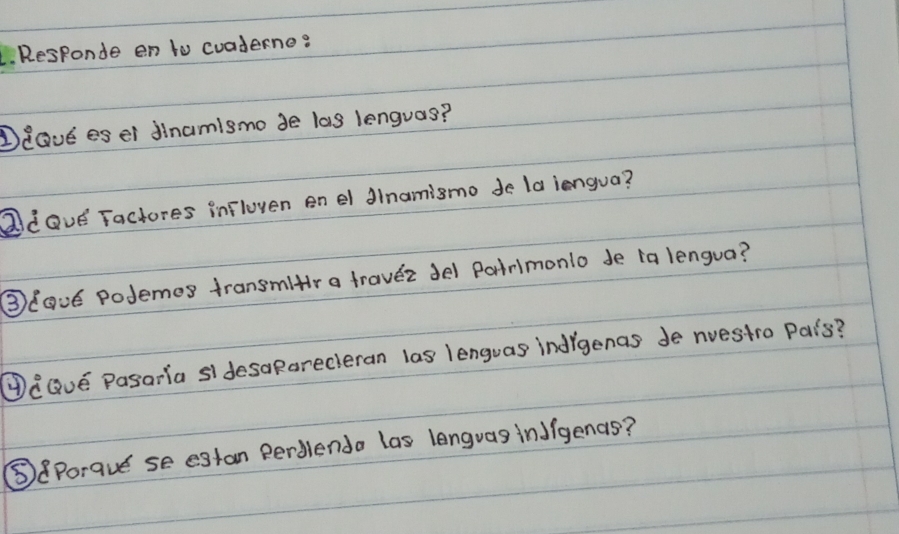 1. Responde en tu cuaderno:
① ¿Qué es el dinamismo de las lenguas?
② ¿Qué Factores influyen en el dinamismo de la lengua?
③ ¿Qué Podemos transmitir a travéz del Patrimonio de la lengua?
④ ¿Qué Pasaría si desaParecieran las lenguas indígenas de nuestro País?
⑤ ¿Porqué se estan Perdiendo las lenguas indígenas?